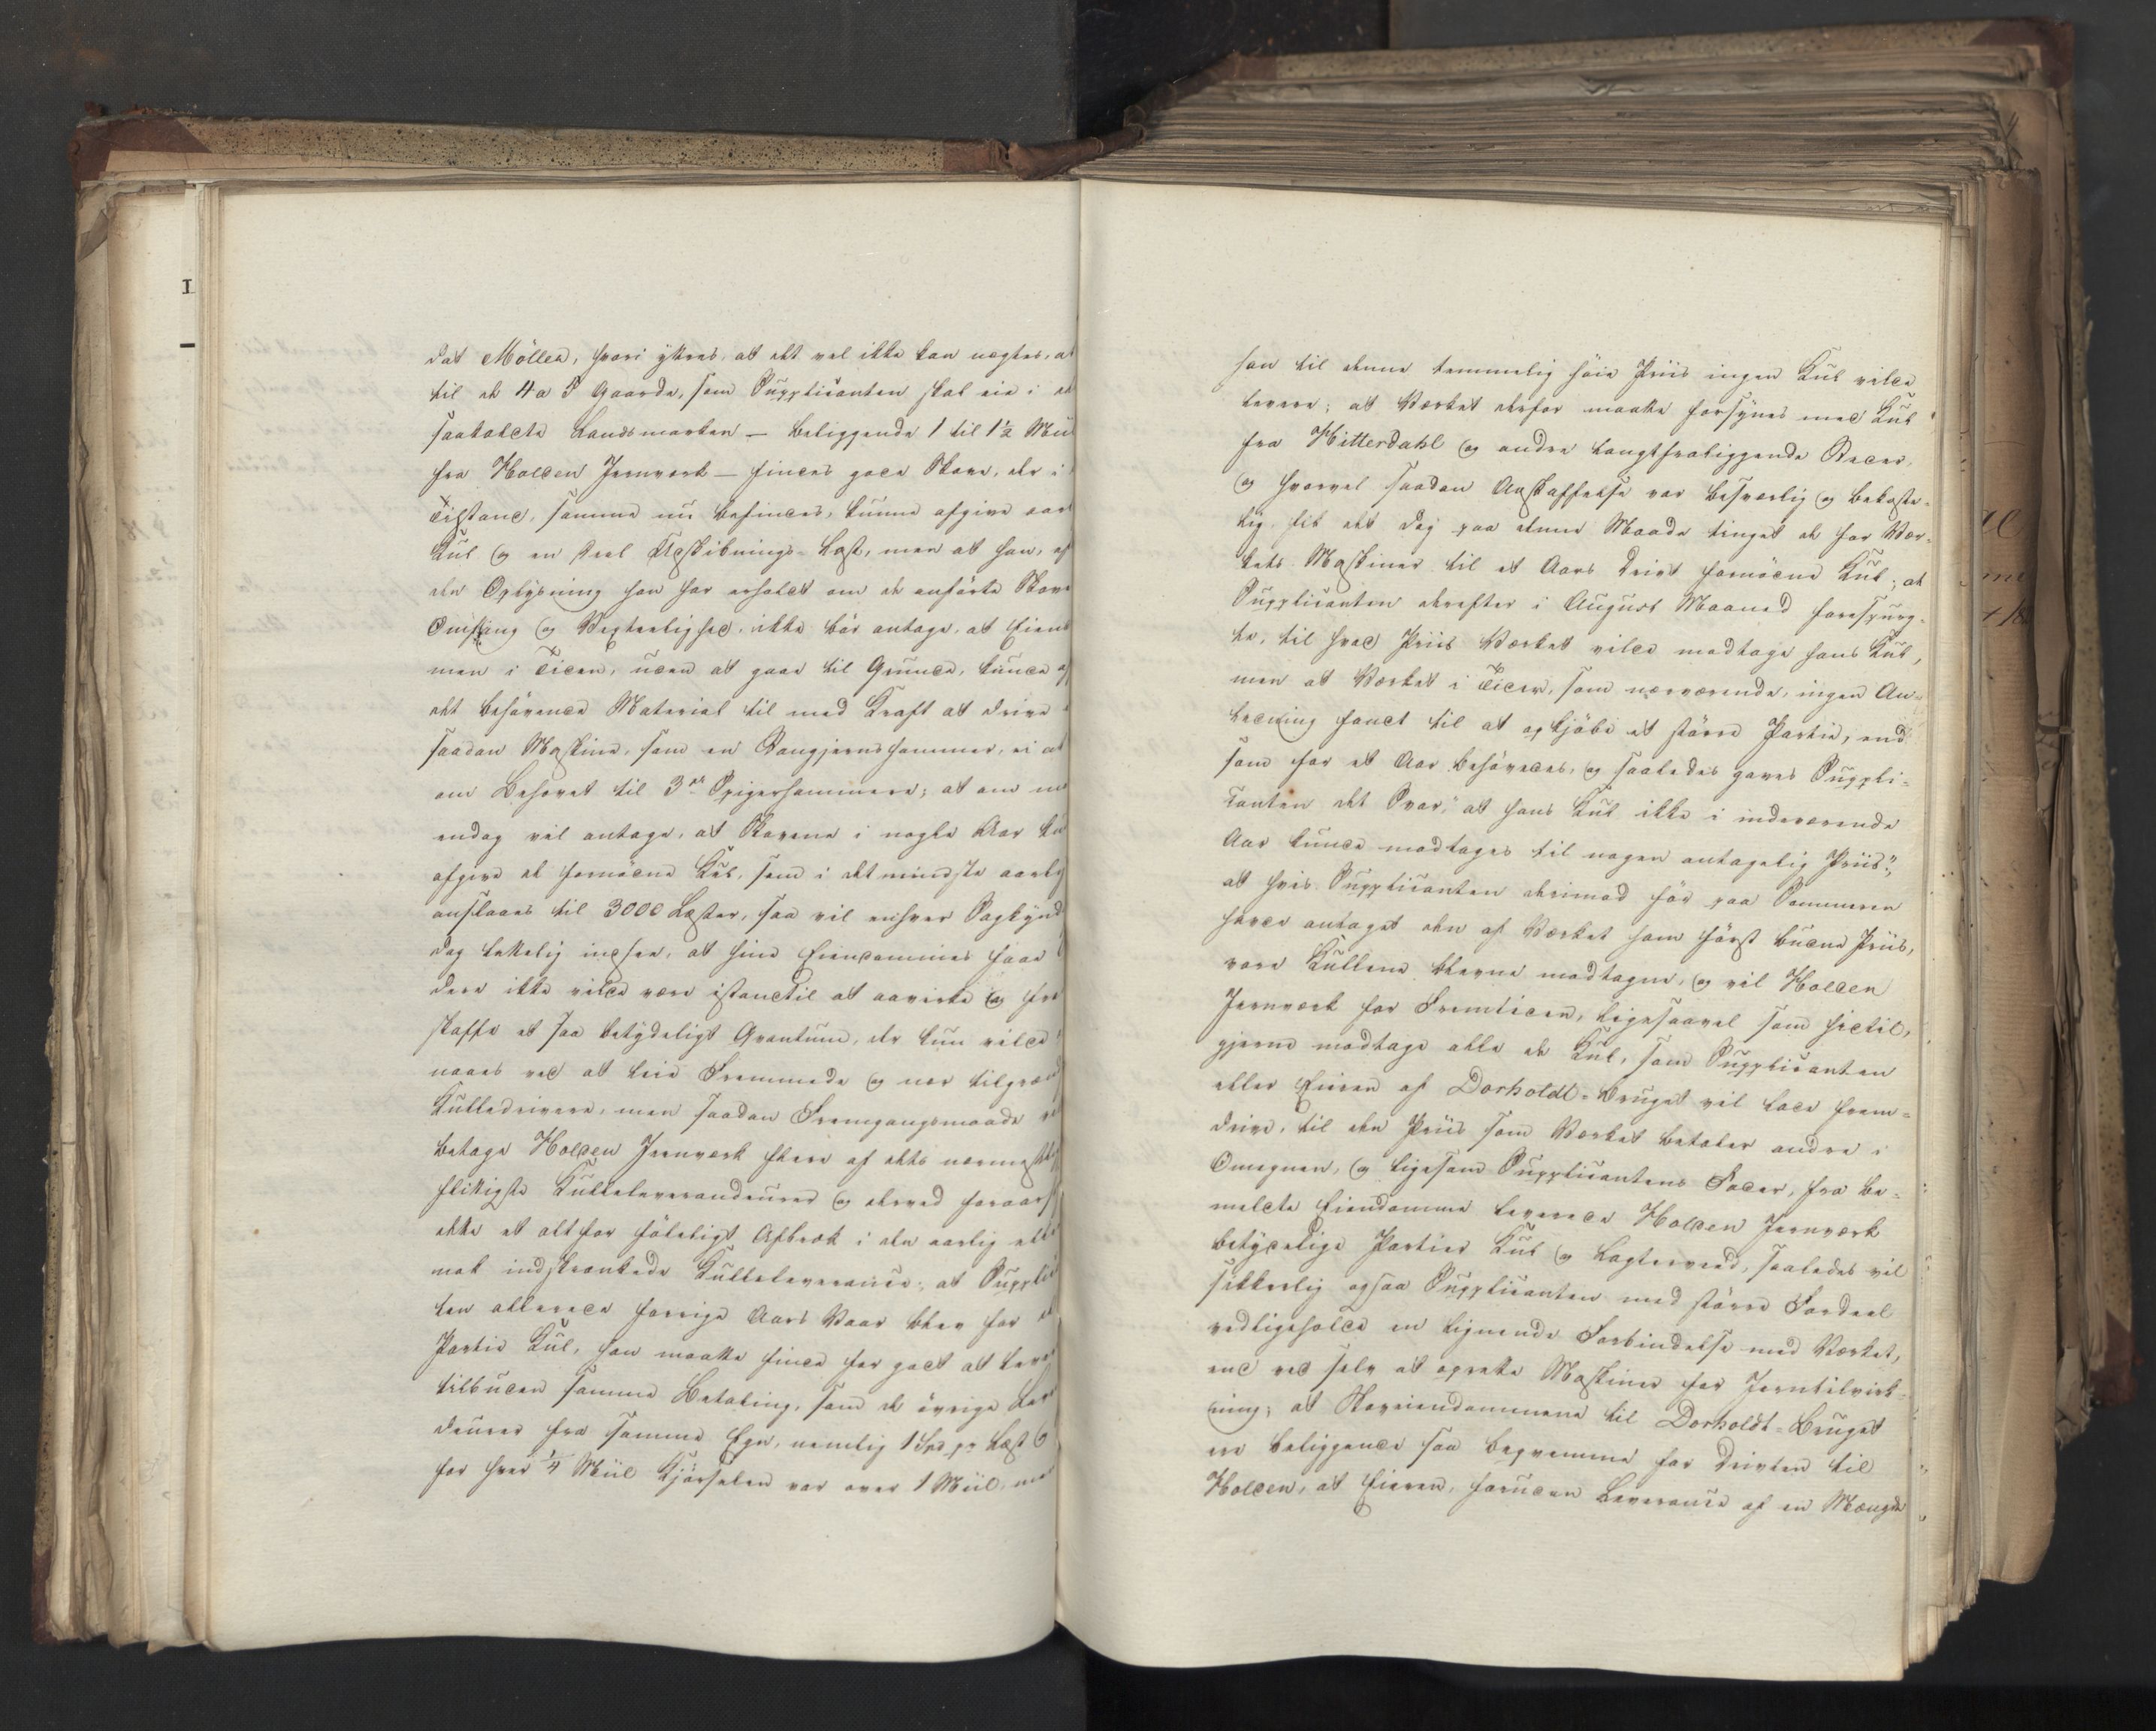 dat Möller, hvori yttres, at det vel ikke kan nægtes, at
til de 4 a 5 Gaarde, som Supplicanten skal eie i de
saakaldte Landsmarken — beliggende 1 til 1½ Miil
fra Holden Jernværk — findes gode Skove, der i
Tilstand, samme nu befindes, kunne afgive aarl
Kul og en Deel Udskibnings-Last, men at han, af
den Oplysning han har erholdt om de anførte Skove
Omfang og Vegteelighed, ikke bör antage, at Eiend
men i Tiden, uden at gaae til Grunde, kunde af
det behövende Material til med Kraft at drive
saadan Maskine, som en Stangjernshammer, ei at
om Behovet til 3de Spigerhammere; at om m
endog vil antage, at Skovene i nogle Aar ku
afgive de fornödne Kul, som i det mindste aarlig
anslaaes til 3000 Læster, saa vil enhver Sagkynd
dog lettelig indsee, at hine Eiendommes Haan
dere ikke vilde være istandtil at aavirke og frem
skaffe et saa betydeligt Qvantum, der kun vilde
naaes ved at leie Fremmede og nær tilgrænd
Kulledrivere, men saadan Fremgangsmaade vi
betage Holden Jernværk flere af dets nærmeste
flittigste Kulleleverandeurer og derved foraars
dette et altfor föleligt Afbræk i den aarlig all
nok indskrænkede Kulleleverance; at Supplic
ten allerede forrige Aars Vaar blev for et
Partie Kul, han maatte finde for godt at leve
tilbuden samme Betaling, som de övrige Lev
deurer fra samme Egn, nemlig 1 Spd pr Læst 6
for hver ¼ Miil Kjörselen var over 1 Miil, m
han til denne temmelig höie Priis ingen Kul vilde
levere; at Værket derfor maatte forsynes med Kul
fra Hitterdahl og andre langtfraliggende Steder,
og hvorvel saadan Anskaffelse var besværlig og bekoste-
lig, fik det dog paa denne Maade tinget de for Vær-
kets Maskiner til et Aars Drivt fornödne Kul; at
Supplicanten derefter i August Maaned forespurg-
te, til hvad Priis Værket vilde modtage hans Kul,
men at Værket i Tider, som nærværende, ingen An-
ledning fandt til at opkjöbe et större Partie, end
som for et Aar behövedes, og saaledes gaves Suppli-
canten det Svar, "at hans Kul ikke i indeværende
Aar kunde modtages til nogen antagelig Priis";
at hvis Supplicanten derimod för paa Sommeren
havde antaget den af Værket ham först budne Priis,
vare Kullene blevne modtagne, og vil Holden
Jernværk for Fremtiden, ligesaavel som hidtil,
gjerne modtage alle de Kul, som Supplicanten
eller Eieren af Dorholdt-Bruget vil lade frem-
drive, til den Priis som Værket betaler andre i
Omegnen, og ligesom Supplicantens Fader, fra be-
meldte Eiendomme leverede Holden Jernværk
betydelige Partier Kul og Lagterveed, saaledes vil
sikkerlig ogsaa Supplicanten med större Fordeel
vedligeholde en lignende Forbindelse med Værket,
end ved selv at oprette Maskiner for Jerntilvirk-
ning; at Skoveiendommene til Dorholdt-Bruget
ere beliggende saa beqvemme for Drivten til
Holden, at Eieren, foruden Leverance af en Mængde